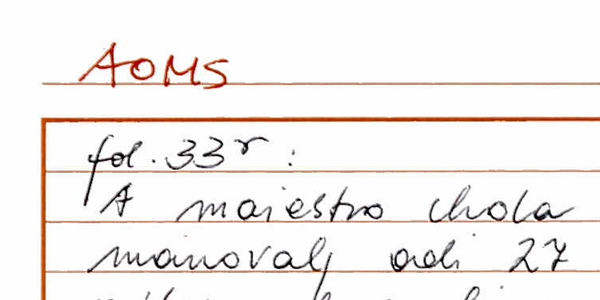 AOMS
fol. 33r:
A maiestro chola
manovalj adi 27